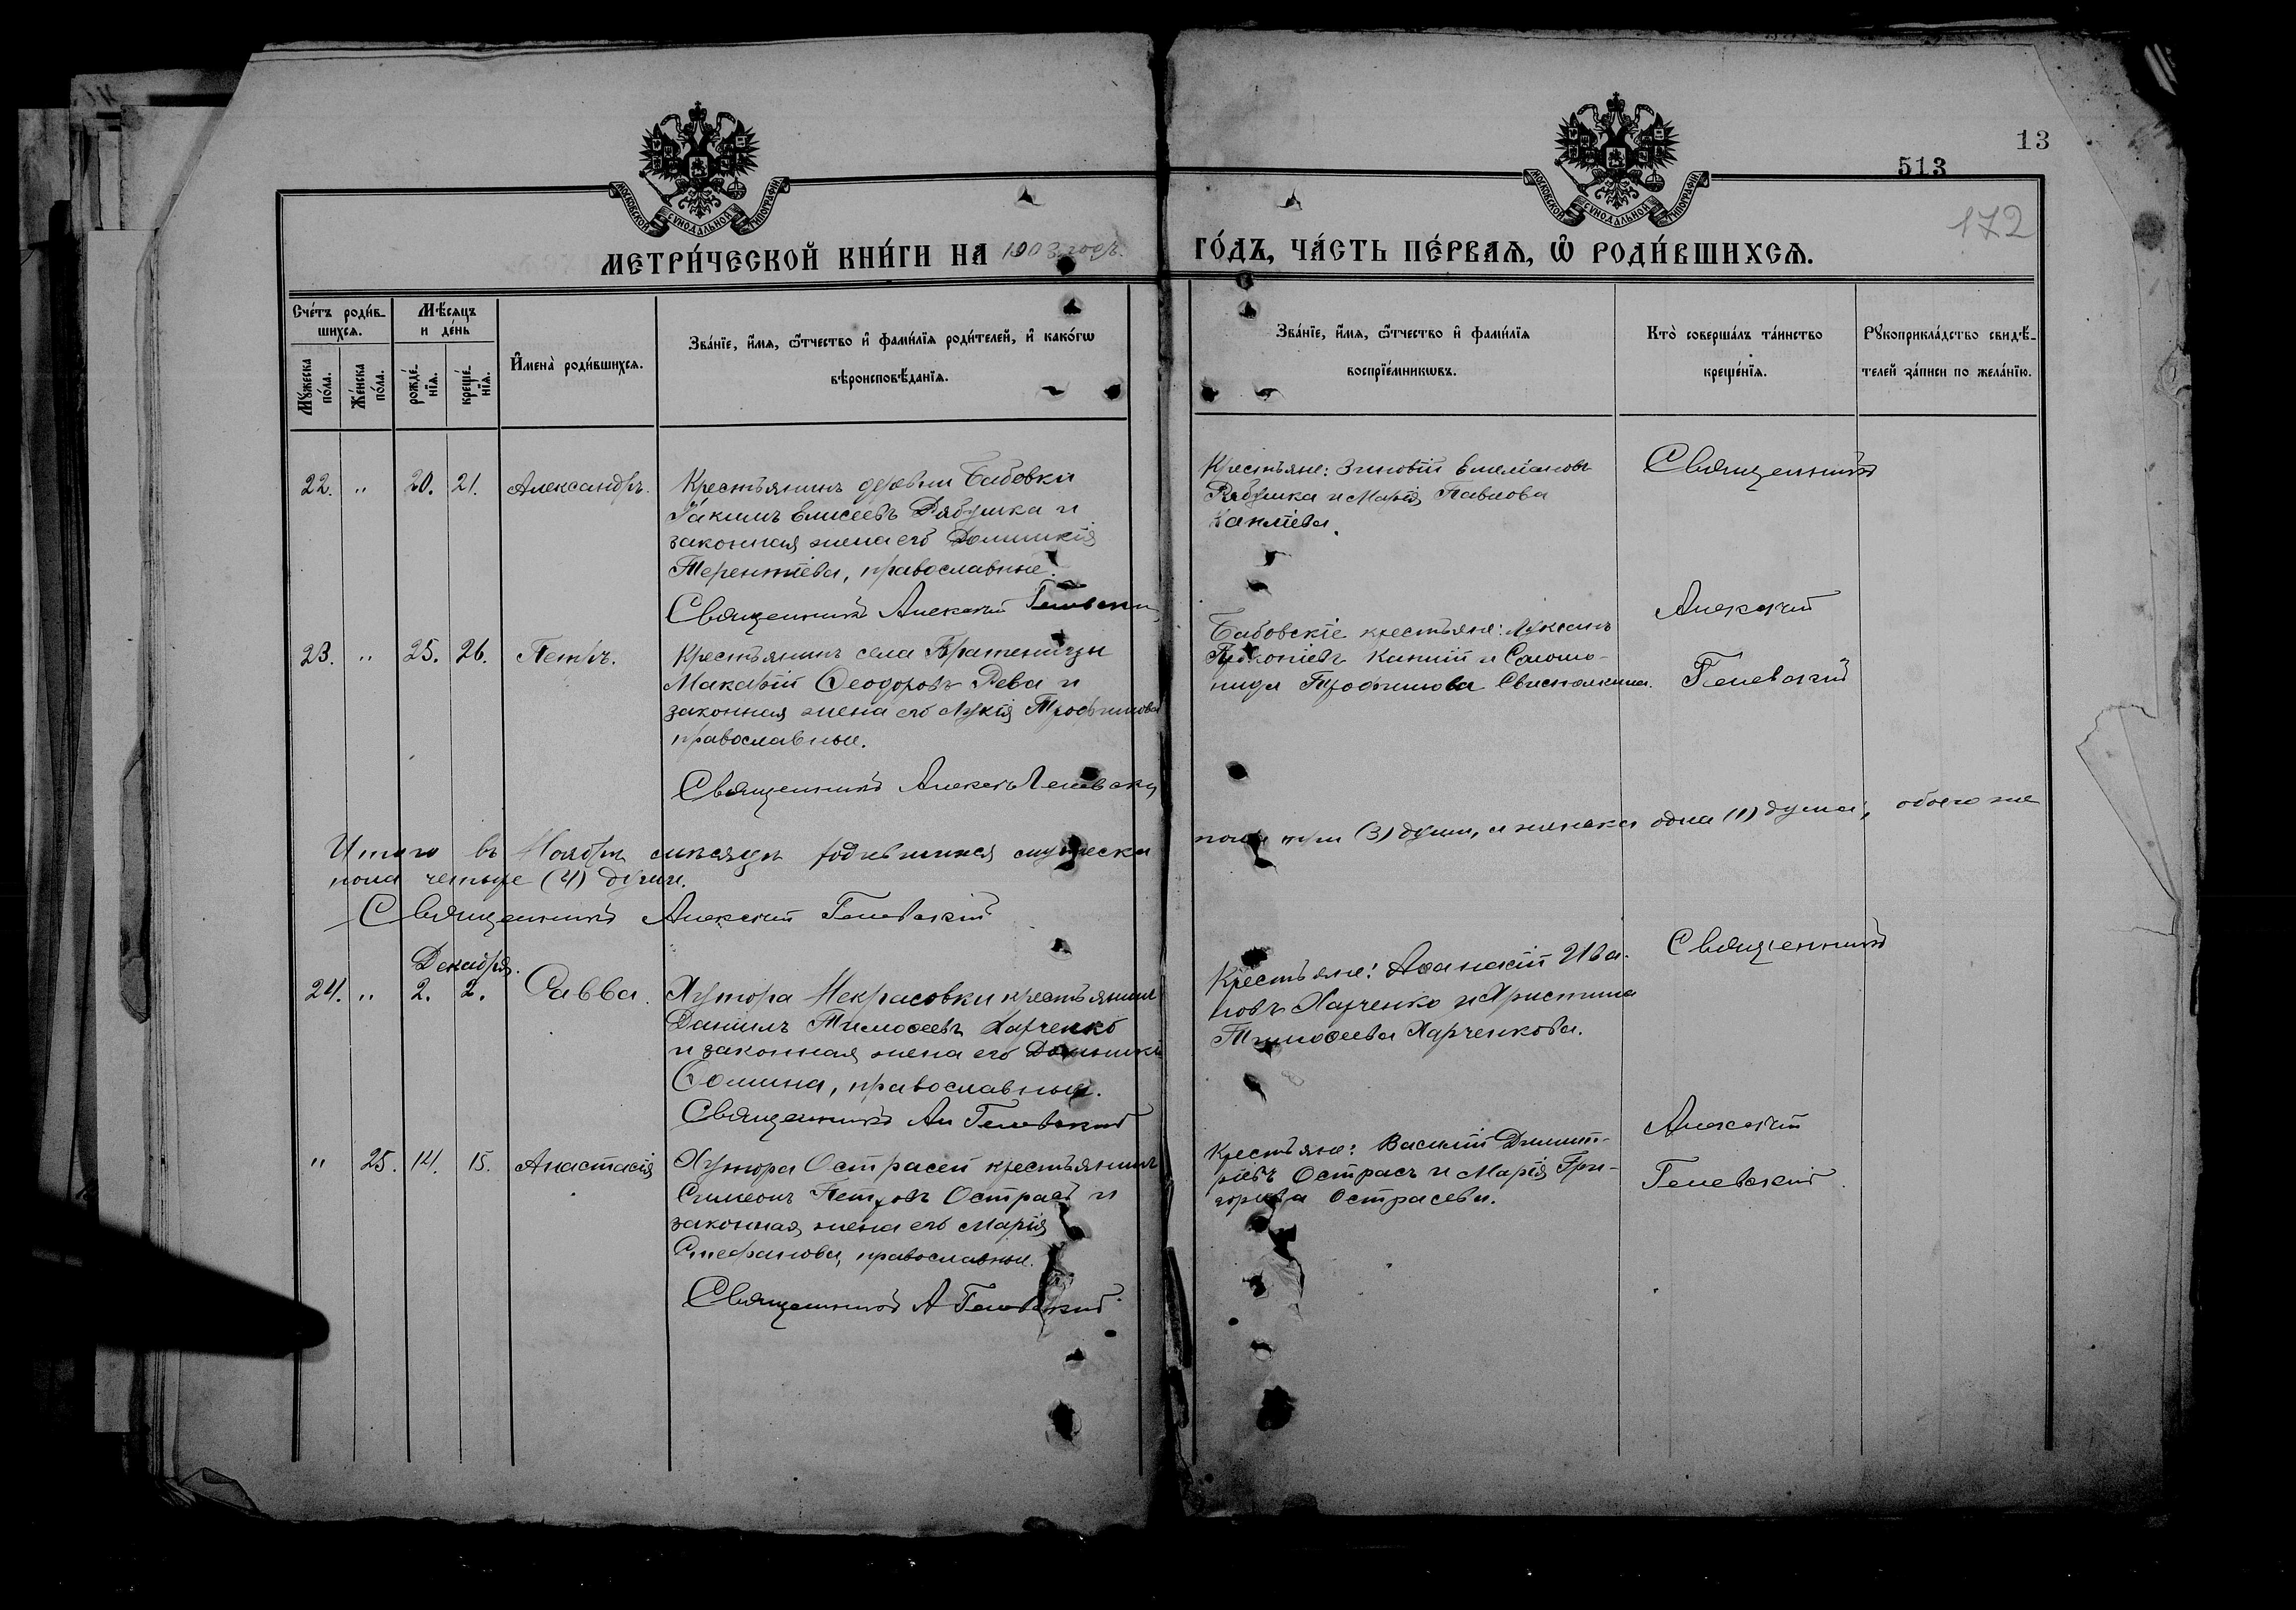 13
513
172
МОСКОВСКОЙ СУНОДАЛЬНОЙ ТИПОГРАФІИ
МОСКОВСКОЙ СУНОДАЛЬНОЙ ТИПОГРАФІИ
МЕТРИ́ЧЕСКОЙ КНИ́ГИ НА 1903 годъ.
ГО́ДЪ, ЧА́СТЬ ПЕ́РВАѦ, Ѽ РОДИ́ВШИХСѦ.
Сче́тъ роди́в-
шихсѧ.
Мѣ́сѧцъ
и де́нь
Мꙋ́жеска
по́ла.
Же́нска
по́ла.
рожде́-
нїѧ.
креще́-
нїѧ.
И҆мена̀ роди́вшихсѧ.
Зва́нїе, и҆́мѧ, ѻ҆́тчество и҆ фами́лїѧ роди́телей, и҆ како́гѡ
вѣроисповѣ́данїѧ.
Зва́нїе, и҆́мѧ, ѻ҆́тчество и҆ фами́лїѧ
воспрїе́мникѡвъ.
Кто̀ соверша́лъ та́инство
креще́нїѧ.
Рꙋкоприкла́дство свидѣ́-
телей за́писи по жела́нїю.
22. " 20. 21. Александръ.
Крестьянинъ деревни Бабовки
Іакимъ Елисеевъ Рябушка и
законная жена его Домникія
Терентіева, православные.
Священникъ Алексій Гелевскій
Крестьяне: Зиновій Емеліановъ
Рябушка и Марія Павлова
Священникъ
23. " 25. 26. Петръ.
Крестьянинъ села Братеницы
Макарій Ѳеодоровъ Рева и
законная жена его Лукія Трофимова
православные.
Священникъ Алексій Гелевскій
Бабовскіе крестьяне: Лукіанъ
Прокопіевъ и Соломо-
нида Трофимова
Алексій
Гелевскій
Итого въ Ноябрѣ мѣсяцѣ родившихся мужеска
пола три (3) души, а женска одна (1) душа, обоего же
пола четыре (4) души.
Священникъ Алексій Гелевскій
Декабря.
24. " 2. 2. Савва.
Хутора Некрасовки крестьянинъ
Даніилъ Тимоѳеевъ Харченко
и законная жена его Домникія
Ѳомина, православные.
Священникъ Ал Гелевскій
Крестьяне: Аѳанасій Ива-
новъ Харченко и Христина
Тимоѳеева Харченкова.
Священникъ
" 25. 14. 15. Анастасія
Хутора Острасей крестьянинъ
Симеонъ ПетровъОстрась и
законная жена его Марія
Стефанова, православные.
Священникъ А Гелевскій
Крестьяне: Василій Димит-
ріевъОстрась и Марія Гри-
горьева Острасева.
Алексій
Гелевскій.